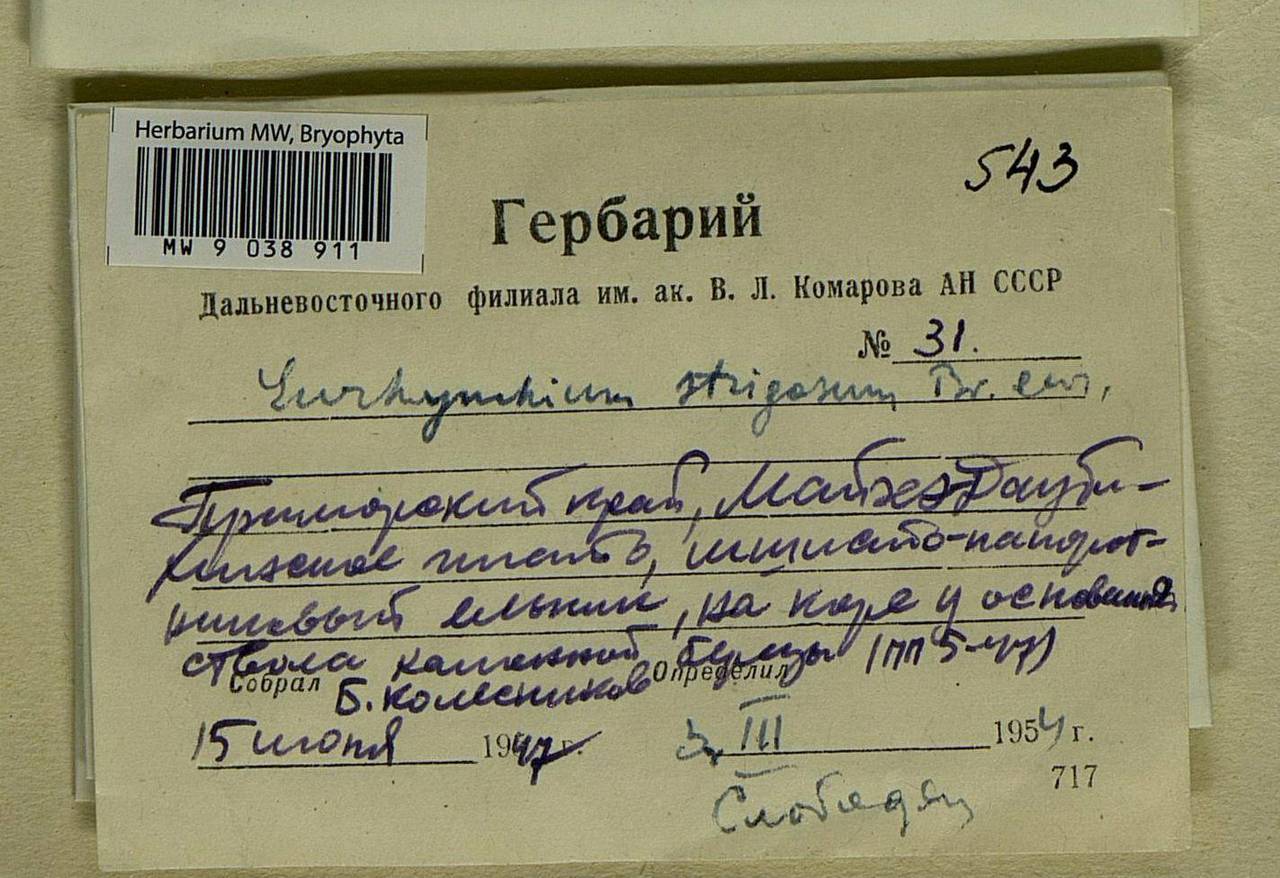 Herbarium MW, Bryophyta
MW 9 038 911
543
Гербарий
Дальневосточного филиала им. ак. В. Л. Комарова АН СССР
№ 31.
Eurhynchium strigosum Br. eur.
Приморский край, Майхэ-Дауби-
хинское плато, мшисто-папорот-
никовый ельник, на коре у основания
ствола каменной березы (пп 5-47)
Собрал Б. Колесников Определил
15 июня 1947 г. 3. III 1954 г.
717